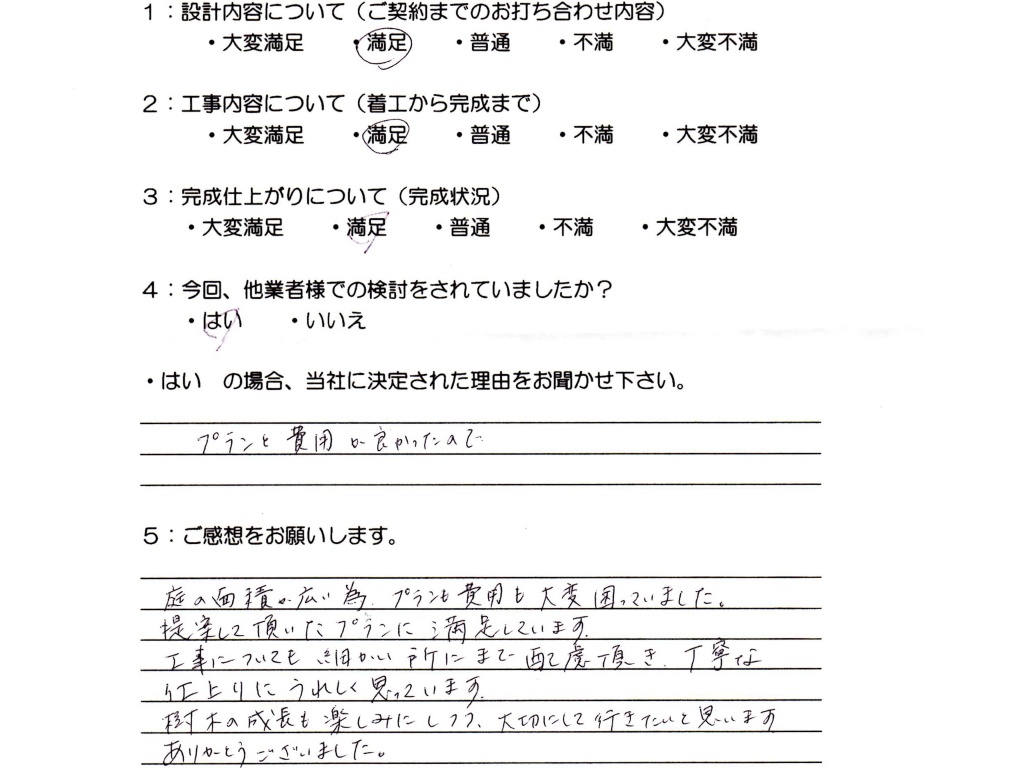 1：設計内容について（ご契約までのお打ち合わせ内容）
・大変満足 ・満足 ・普通 ・不満 ・大変不満
2：工事内容について（着工から完成まで）
・大変満足 ・満足 ・普通 ・不満 ・大変不満
3：完成仕上がりについて（完成状況）
・大変満足 ・満足 ・普通 ・不満 ・大変不満
4：今回、他業者様での検討をされていましたか？
・はい ・いいえ
・はい の場合、当社に決定された理由をお聞かせ下さい。
プランと費用が良かったので
5：ご感想をお願いします。
庭の面積が広い為、プランも費用も大変困っていました。
提案して頂いたプランに満足しています。
工事についても細かい所にまで配慮頂き、丁寧な
仕上りにうれしく思っています。
樹木の成長も楽しみにしつつ、大切にして行きたいと思います
ありがとうございました。